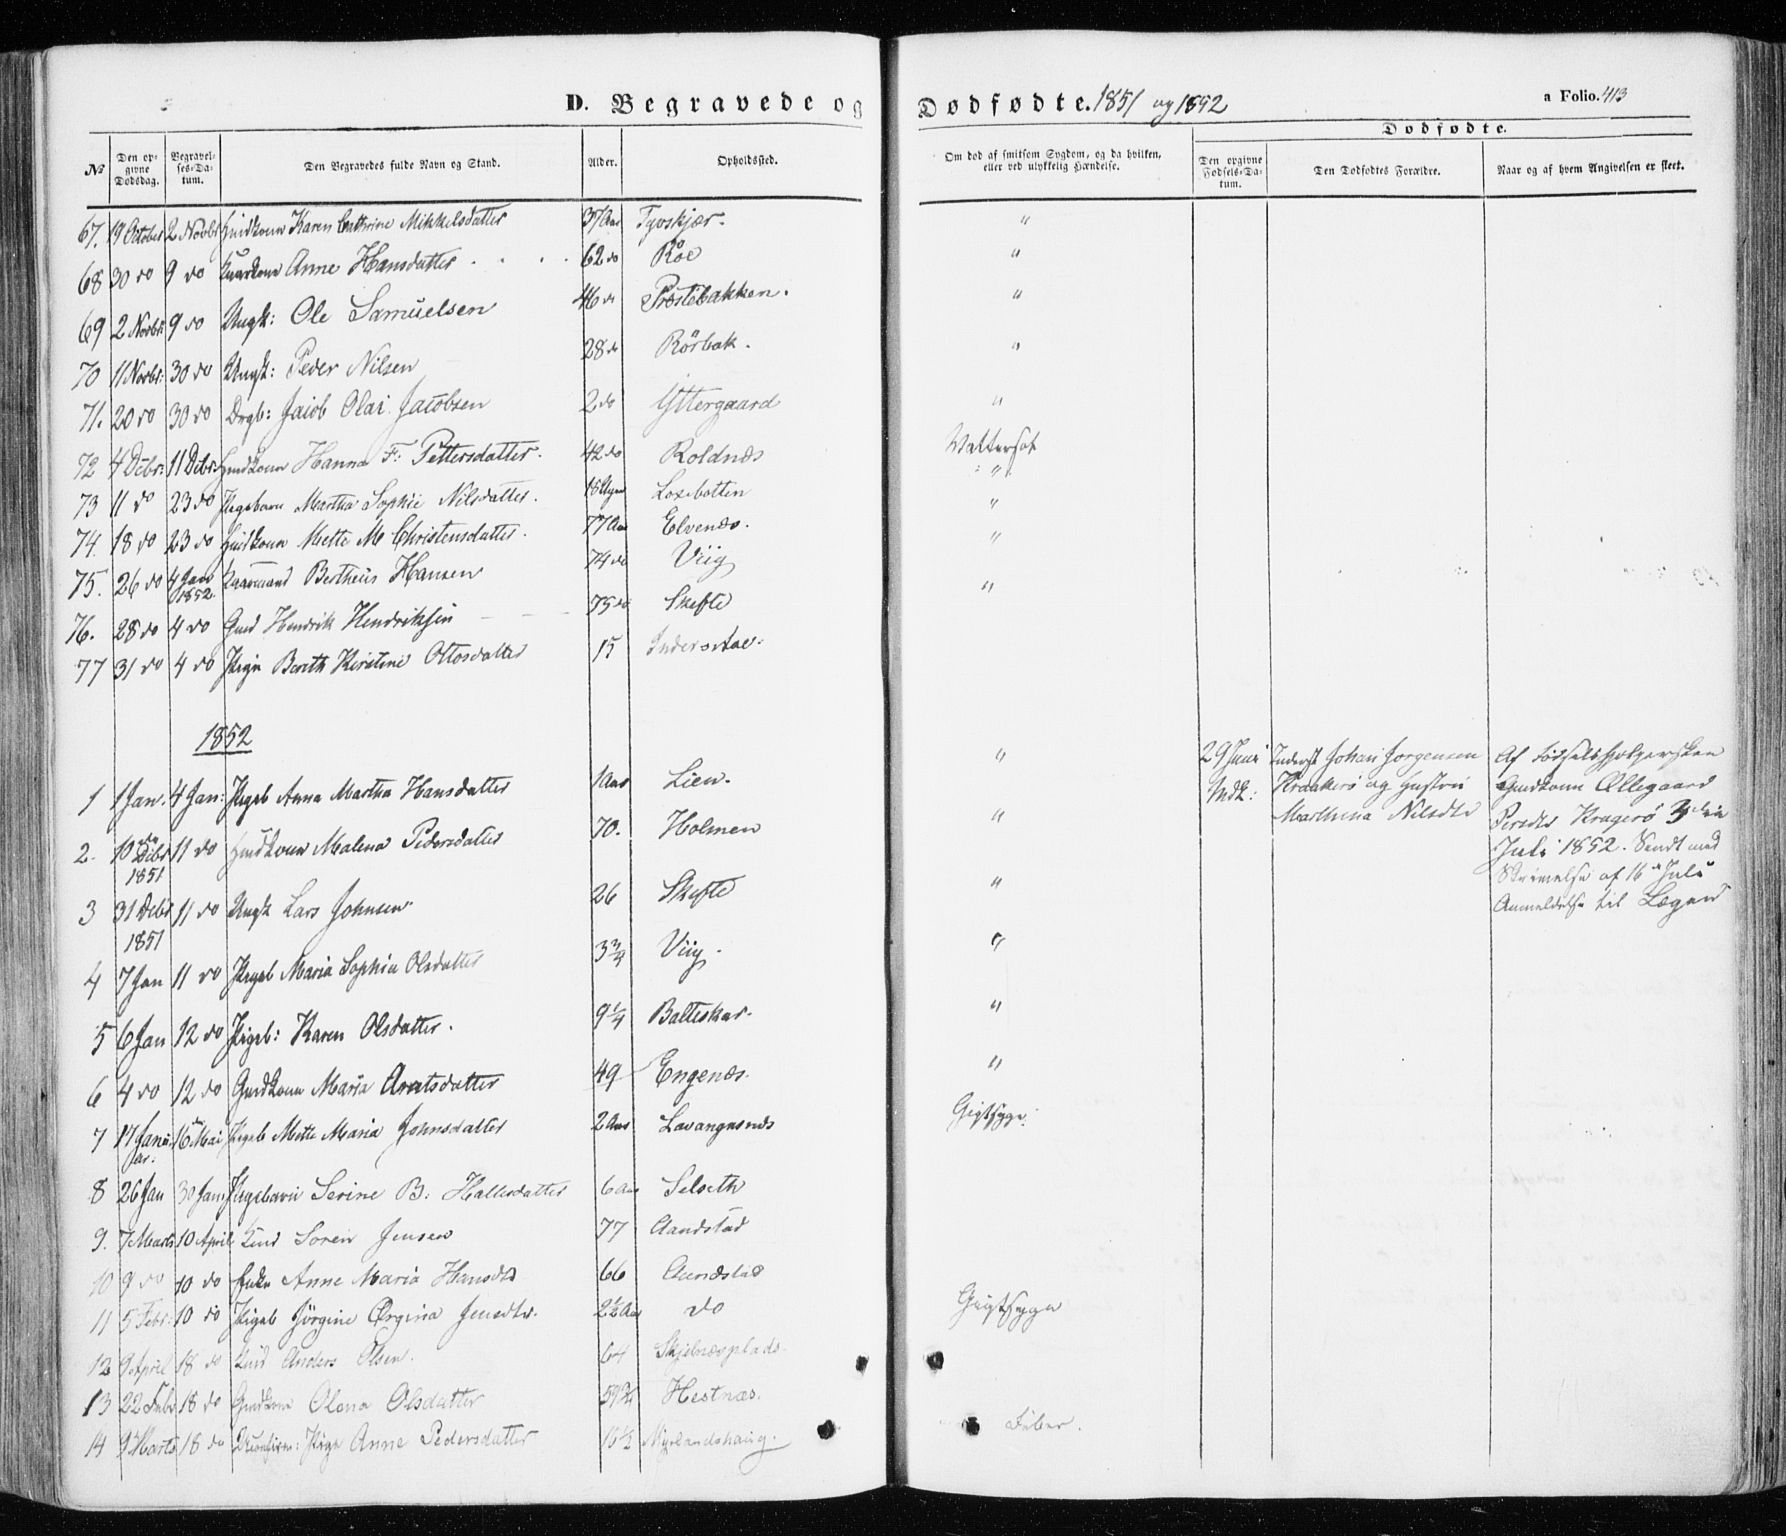 D. Begravede og Dødfødte. 1851 og 1852
a Folio. 413
Dødfødte.
No
Den opgivne Dødsdag.
Begravelses-Datum.
Den Begravedes fulde Navn og Stand.
Alder.
Opholdssted.
Om død af smitsom Sygdom, og da hvilken, eller ved ulykkelig Hændelse.
Den opgivne Fødsels-Datum.
Den Dødfødtes Forældre.
Naar og af hvem Angivelsen er skeet.
67. 19 October 2 Novbr Huuskone Karen Cathrine Mikkelsdatter 37 Aar Tyvskjær. "
68 30 do 9 do Anne Hansdatter 62 do Röe "
69 2 Novbr: 9 do Ungk: Ole Samuelsen 46 do Prostebakken. "
70 11 Novbr: 30 do Ungk: Peder Nilsen 28 do Rörbak. "
71. 20 do 30 do Drgb: Jacob Olai Jacobsen 2 do Yttergaard "
72 4 Debr: 11 Debr: Hanna F: Pettersdatter. 42 do Roldnæs Wattersot
73 11 do 23 do Pigebarn Martha Sophie Nilsdatter. 18 Uger Loxebotten "
74. 18 do 23 do Mette M Christensdatter. 77 Aar Elvenæs. "
75. 26 do 4 Jan 1852 Kaarmand Bertheus Hansen 74 do Viig "
76. 28 do 4 do Gmd Hendrik Hendriksen 75 do Skefte "
77 31 do 4 do Pige Bereth Kirstine Ottosdatter 15
1852
1 1 Jan. 4 Jan: Pigeb Anna Martha Hansdatter 1 Aar Lien. "
2. 10 Debr 1851 11 do Malena Pedersdatter 70. Holmen "
3 31 Debr 1851 11 do Ungk Lars Johnsen 26 Skefte "
4 7 Jan 11 do Pigeb Maria Sophia Olsdatter 3 3/4 Viig. "
5 6 Jan 12 do Pigeb: Karen Olsdatter. 9 1/4 Balteskar. "
6 4 do 12 do Gmdkone Maria Arntsdatter 49 Engenæs. "
7 17 Januar: 16 Mai Pigeb Mette Maria Johnsdatter 2 Aar Lavangsnæs Gigtsyge.
8 26 Jan 30 Jan Pigebarn Serine B: Hallesdatter 6 Aar Selseth
9. 7 Marts 10 April Kmd Sören Jensen 77 Aandstad
10 9 do 10 do Enke Anne Maria Hansdtr 66 Aandstad
11 5 Febr: 10 do Pigeb Jörgine Ørgina Jensdtr. 2 1/2 Aar do Gigtsyge
12 9 April 18 do Kmd Anders Olsen. 64 Skjelnæsplads.
13 22 Febr 18 do Gmdkone Olena Olsdatter 59 3/4 Hestnæs.
14 9 Marts 18 do Pige Anne Pedersdatter 16 1/2 Myrlandshaug. Feber.
29 Juni
Mdk:
Inderst Johan Jørgensen
Kraakerø og Hustru
Marthina Nilsdtr
Af Fødselshjelpersken
Gmdkone Ollegaard
Persdtr Kragerö 3die
Juli 1852. Sendt med
Skrivelse af 16 Juli
Anmeldelse til Lægen